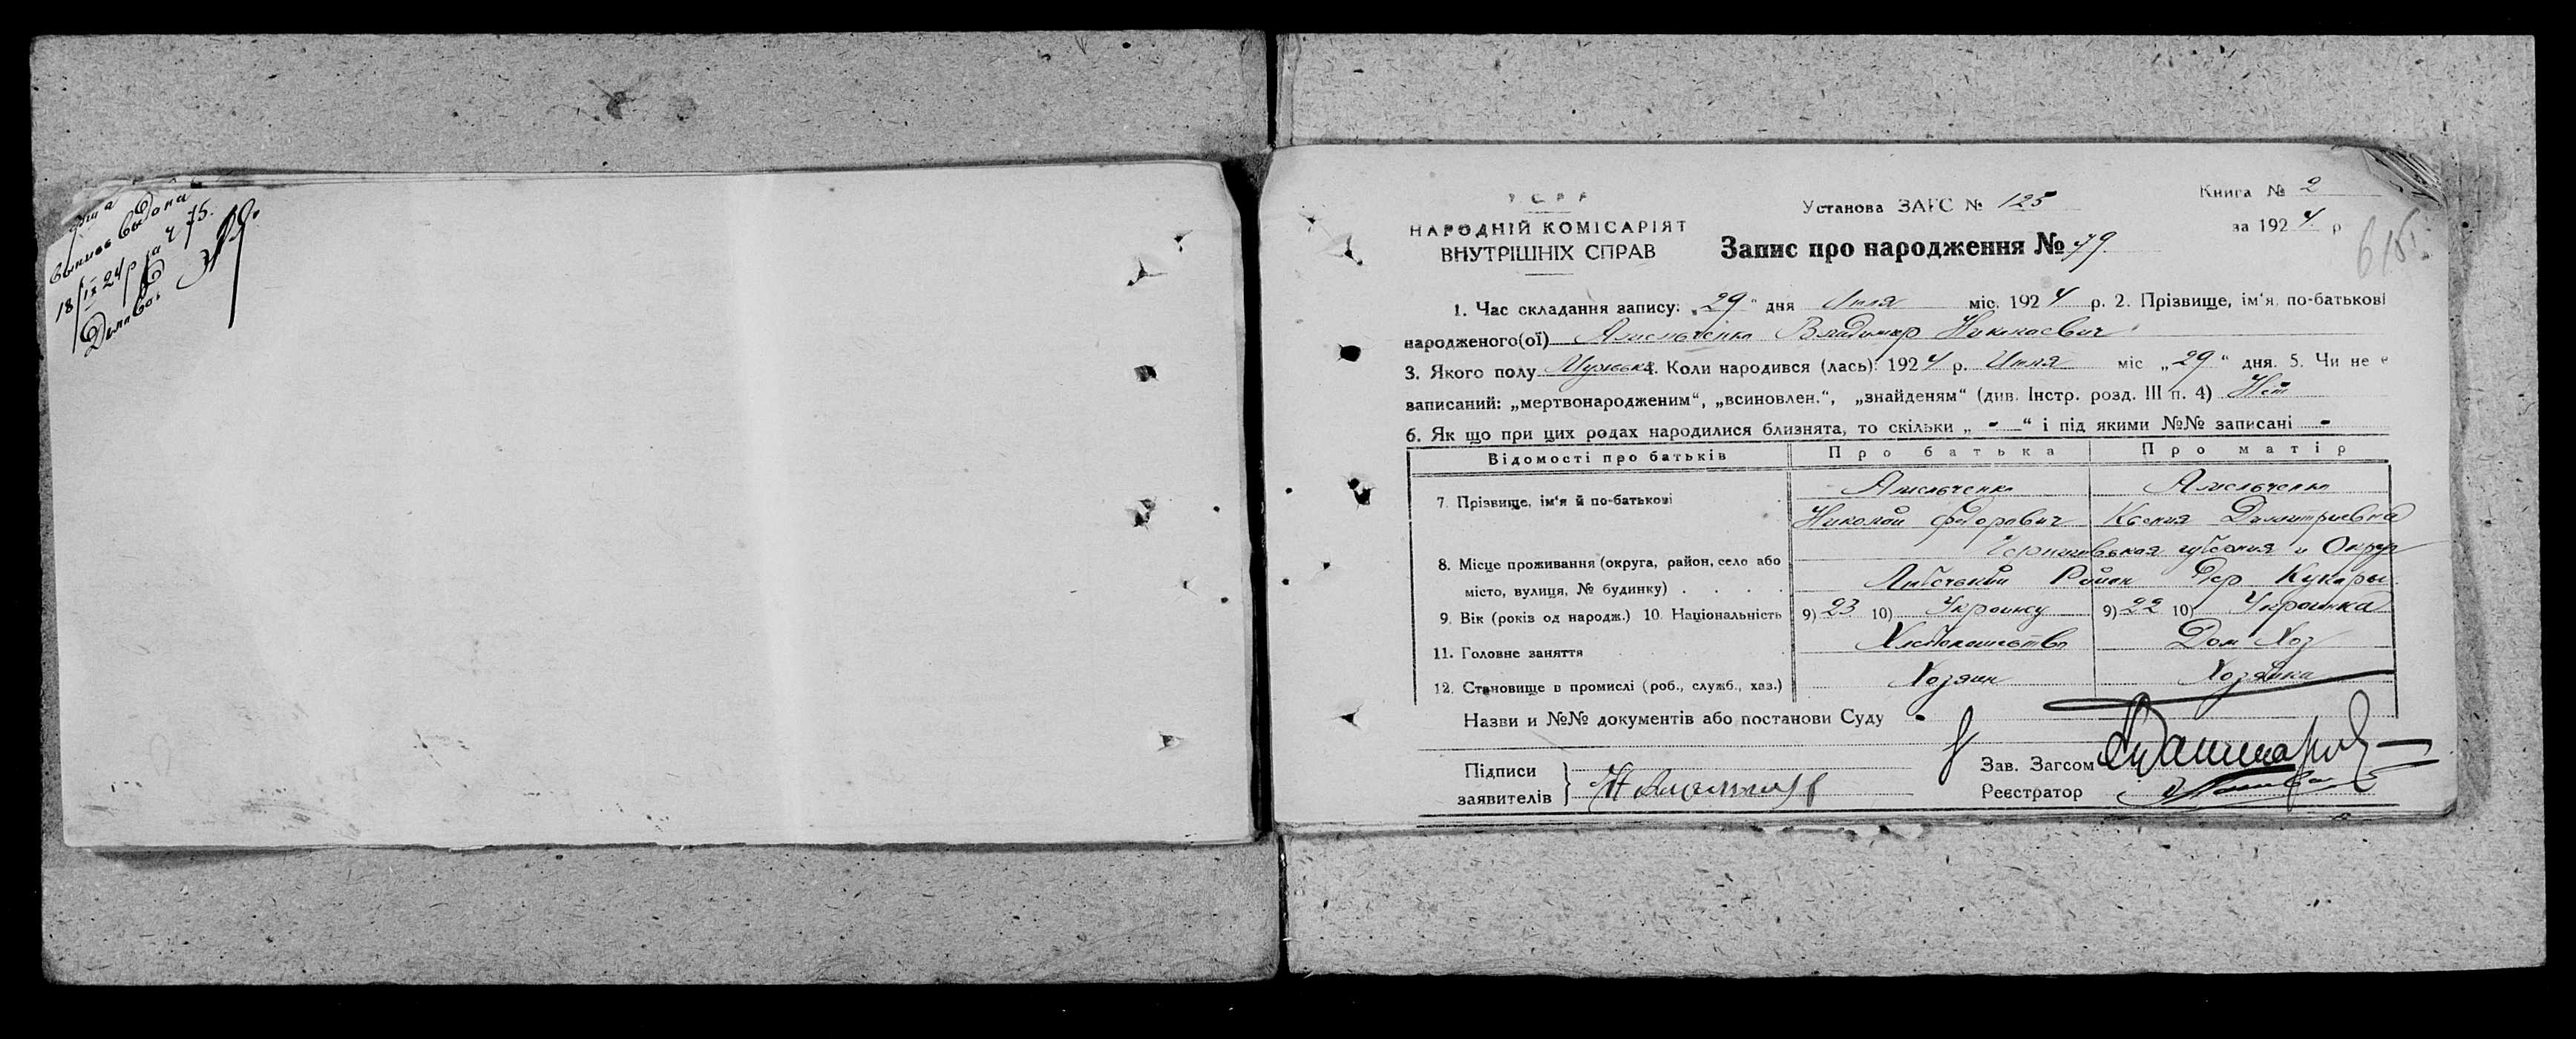 выпись выдана
18/IX 24 р за № 75.
У С Р Р
НАРОДНІЙ КОМІСАРІЯТ
ВНУТРІШНІХ СПРАВ
Установа ЗАГС № 125
Запис про народження № 79.
Книга № 2
за 1924 р
1. Час складання запису: „29" дня Июля міс. 1924 р. 2. Прізвище, ім'я, по-батькові
народженого(ої) Амельченко Владимир Николаевич
3. Якого полу Мужска 4. Коли народився (лась): 1924 р. Июля міс „29" дня. 5. Чи не є
записаний: „мертвонародженим", „всиновлен.", „знайденям" (див. Інстр. розд. III п. 4) Нет
6. Як що при цих родах народилися близнята, то скільки „ - " і під якими №№ записані -
Відомості про батьків Про батька Про матір
7. Прізвище, ім'я й по-батькові Амельченко Амельченко
Николай Федорович Ксения Дымитриевна
Черниговская губерния и Округ
8. Місце проживання (округа, район, село або
місто, вулиця, № будинку) . . . . Любечский Район Дер Кукары
9. Вік (років од народж.) 10. Національність 9) 23 10) Украинец 9) 22 10) Украинка
11. Головне заняття Хлебопашество Дом Хоз
12. Становище в промислі (роб., служб., хаз.) Хозяин Хозяйка
Назви и №№ документів або постанови Суду -
Підписи
заявителів
Зав. Загсом
Реєстратор